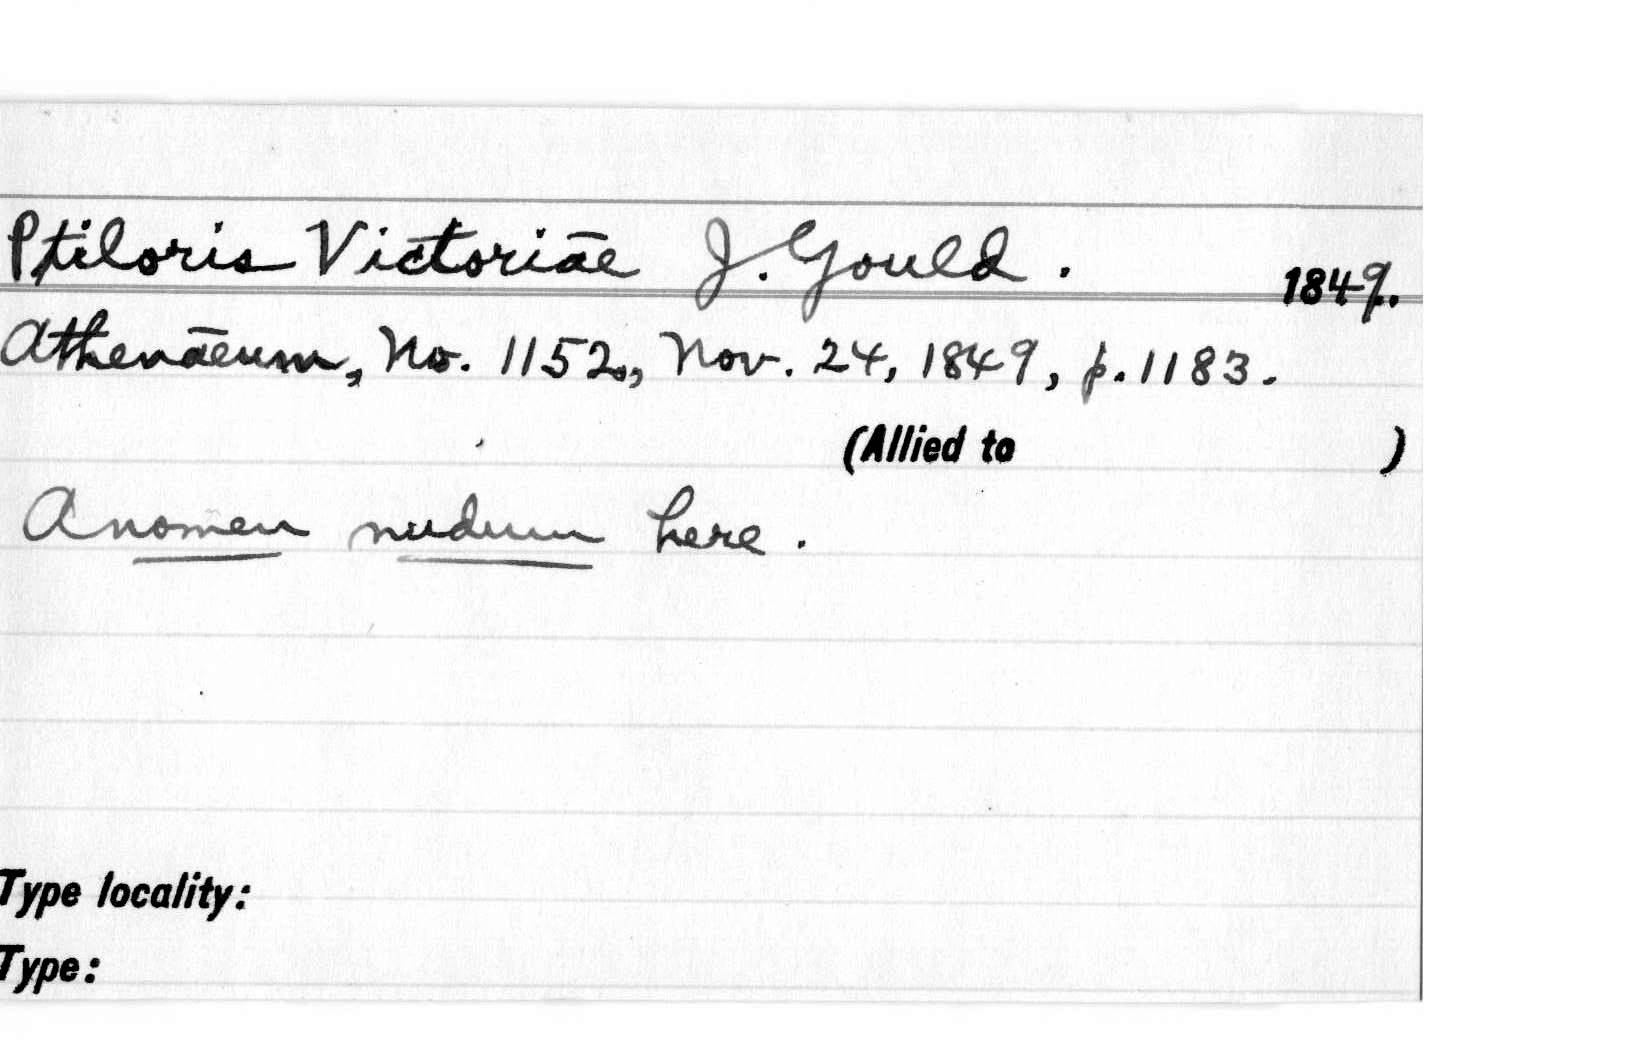 Ptiloris Victoriae J. Gould. 1849.
Athenaeum, No. 1152, Nov. 24, 1849, p. 1183.
(Allied to )
A nomen nudum here.
Type locality:
Type: